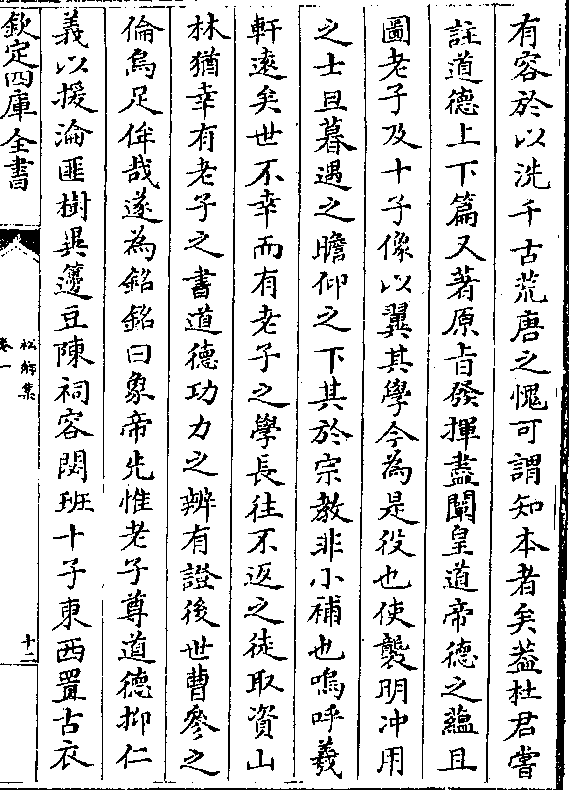 有容於以洗千古荒唐之愧可謂知本者矣葢杜君嘗
註道德上下篇又著原旨發揮盡闡皇道帝德之蘊且
圖老子及十子像以翼其學今為是役也使襲明冲用
之士旦暮遇之瞻仰之下其於宗教非小補也嗚呼羲
軒逺矣世不幸而有老子之學長往不返之徒取資山
林猶幸有老子之書道德功力之辨有證後世曹參之
倫烏足侔哉遂為銘銘曰象帝先惟老子尊道德抑仁
義以援淪匪樹異籩豆陳祠容閟班十子東西置古衣
欽定四庫全書
松鄉集
卷一
十二